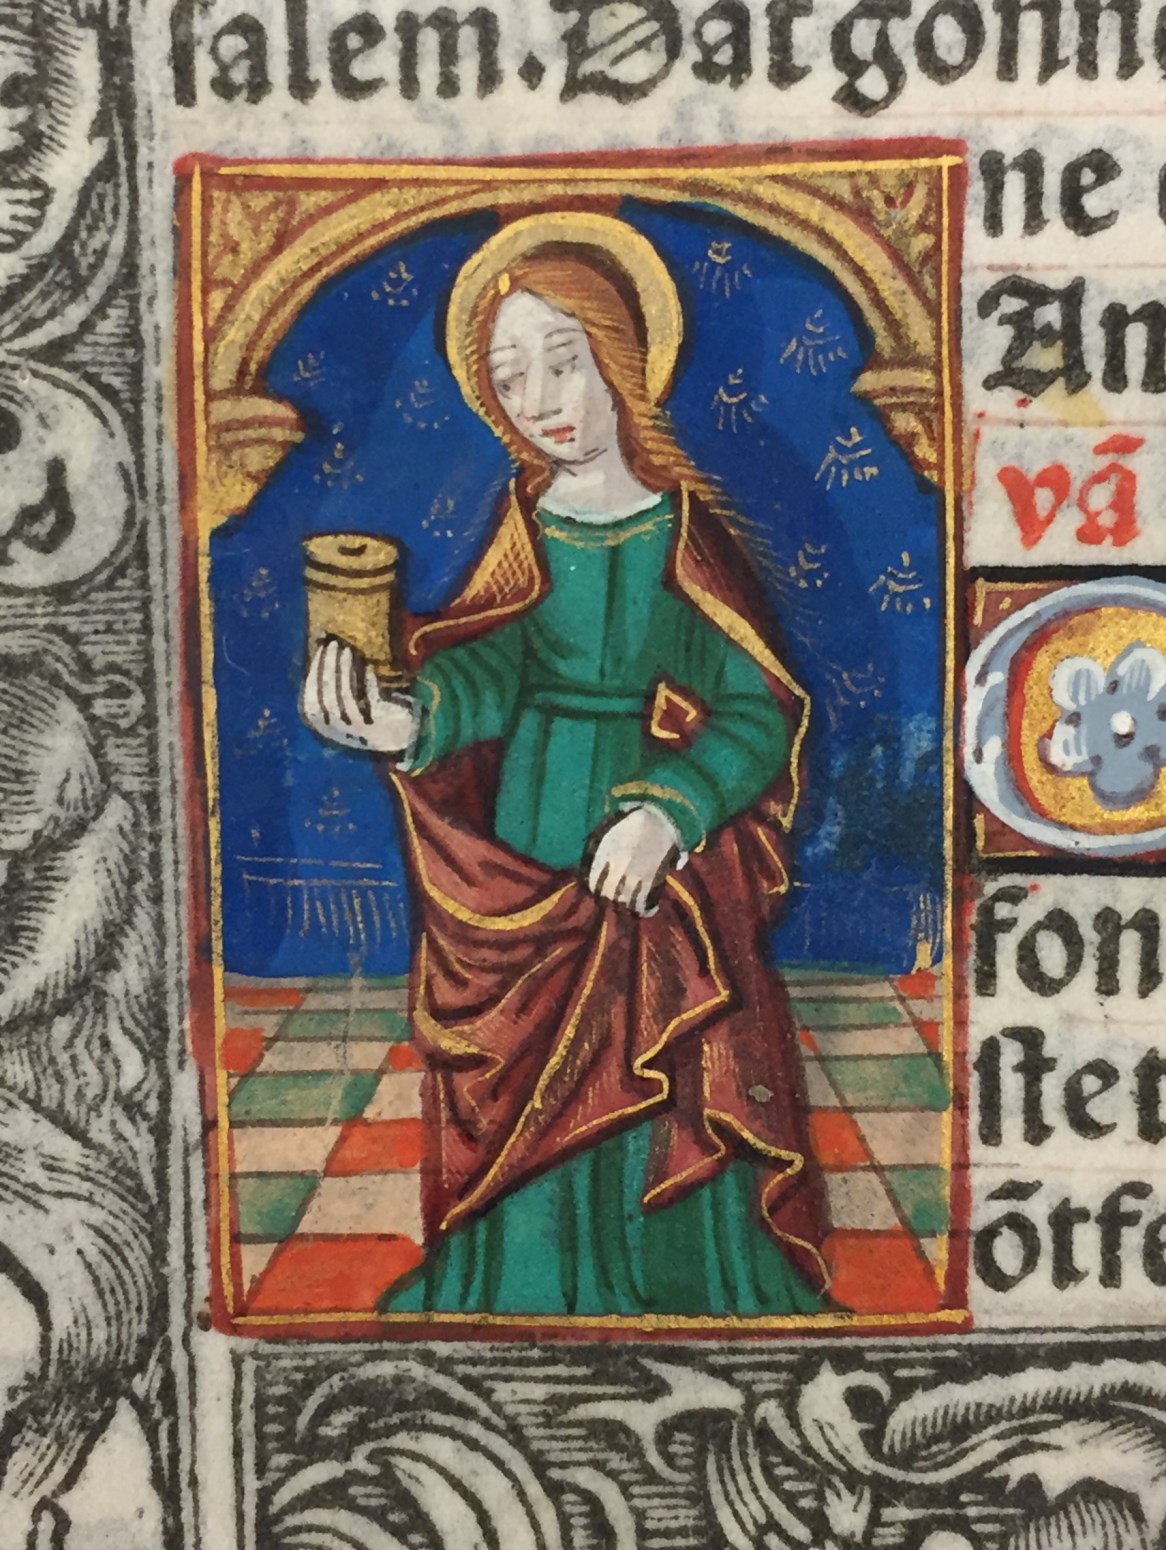 salem. Dat gonne
ne
An
vā
fon
ster
ōtfe